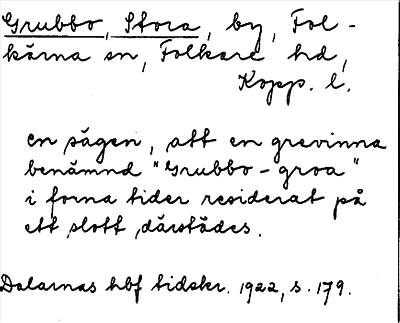 Grubbo, Stora, by, Fol-
kärna sn, Folkare hd,
Kopp. l.
en sägen, att en grevinna
benämnd "Grubbo-groa"
i forna tider residerat på
ett slott därstädes.
Dalarnas hbf tidskr. 1922, s. 179.